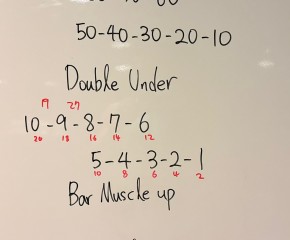 50-40-30-20-10
Double Under
19 27
10-9-8-7-6
20 18 16 14 12
5-4-3-2-1
10 8 6 4 2
Bar Muscle up